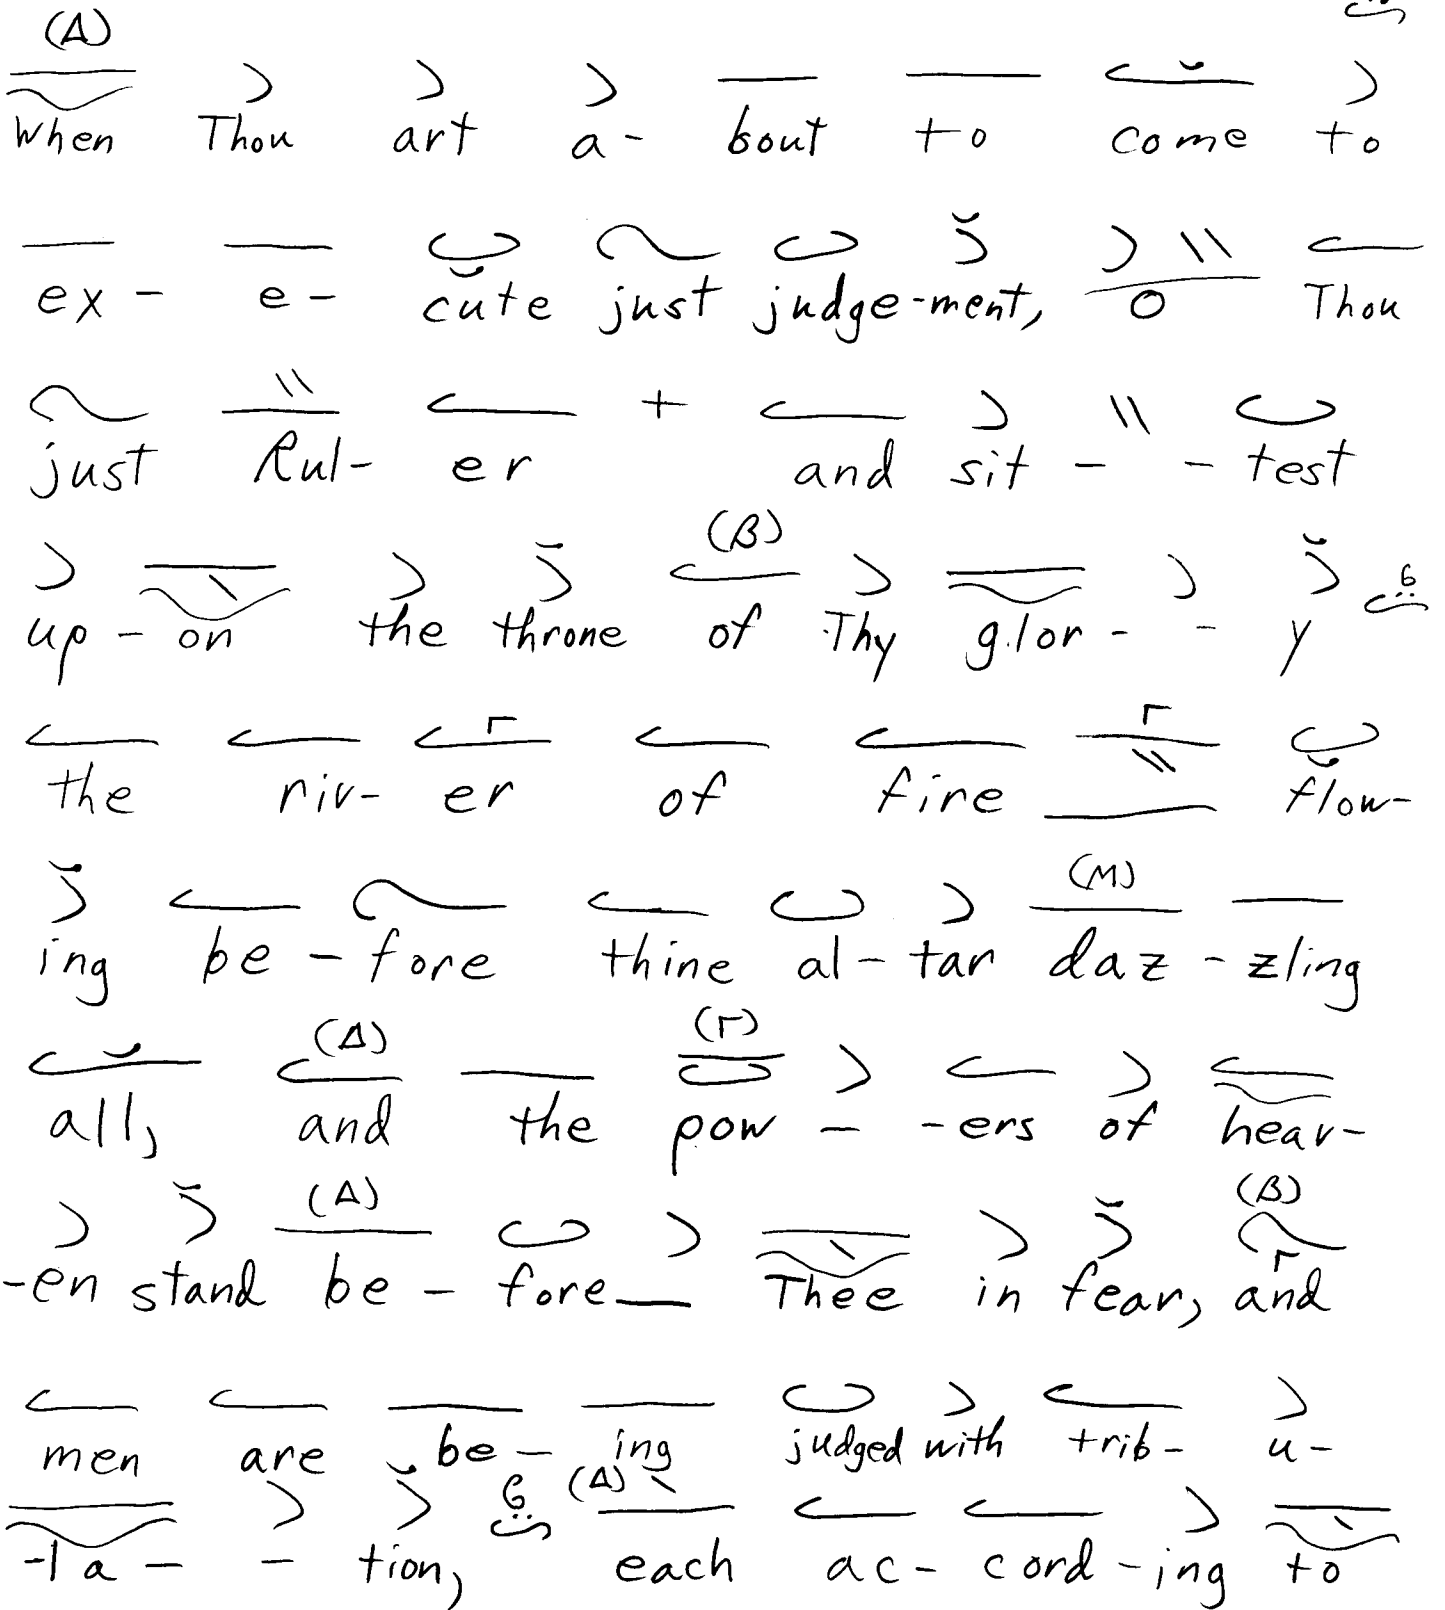 (Δ)
When Thou art a- bout to come to
ex - e - cute just judge-ment, O Thou
just Rul- er + and sit - - test
(B)
up - on the throne of Thy glor - - y
Γ Γ
the riv- er of fire flow-
(M)
ing be - fore thine al - tar daz - zling
(Δ) (Γ)
all, and the pow - -ers of heav-
(Δ) (B)
-en stand be - fore Thee in fear, and
men are be - ing judged with trib- u-
(Δ)
-la - - tion, each ac- cord -ing to